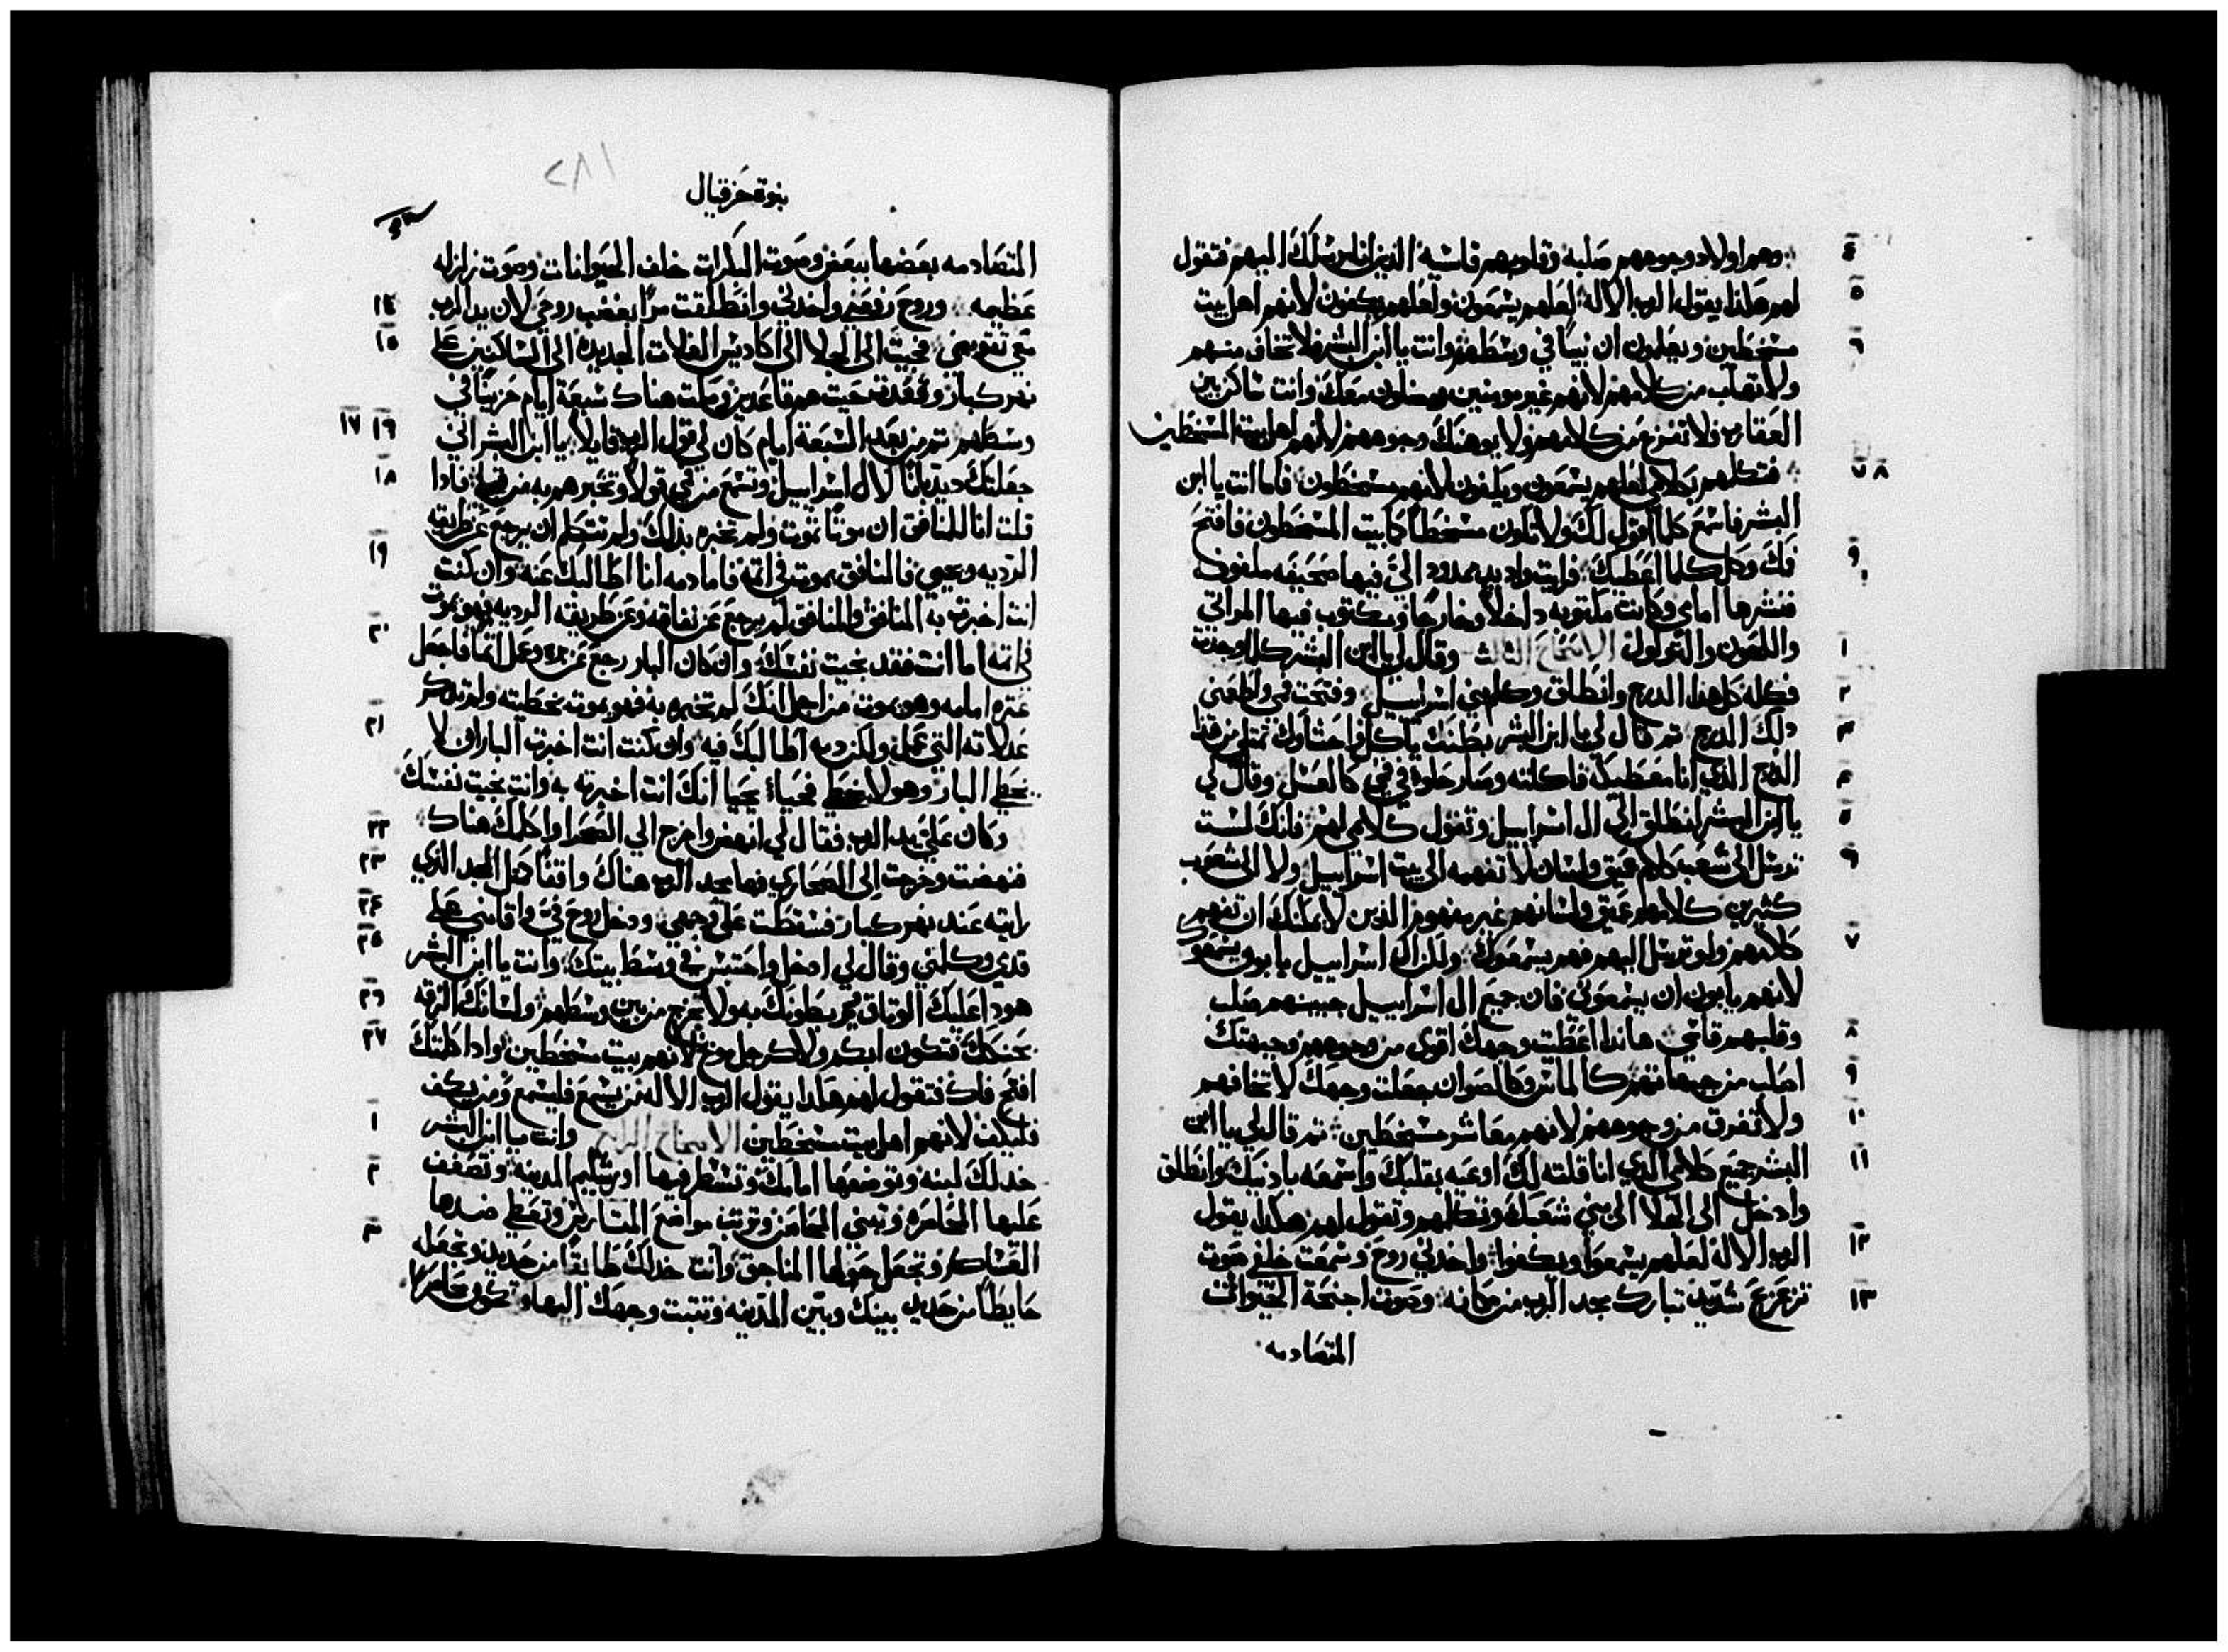 ٤ وهم اولاد وجوههم صلبه وقلوبهم قاسيه الذين انا مرسلك اليهم فتقول
٥ لهم هكذا يقول الرب الاله لعلهم يسمعون ولعلهم يكفون لانهم اهل بيت
٦ مسخطين ويعلمون ان نبيا في وسطهم وانت يا ابن البشر فلا تخاف منهم
ولا تهاب من كلامهم لانهم غير مومنين ومضلون معك وانت ساكن بين
العقارب فلا تفزع من كلامهم ولا يوهنك وجوههم لانهم اهل بيت المسخطين
٧ ٨ فتكلهم بكلامي لعلهم يسمعون ويكفون لانهم مسخطون فاما انت يا ابن
البشر فاسمع كلما اقول لك ولا تكون مسخطا كابيت المسخطون فافتح
٩ فك وكل كلما اعطيك فرايت واد بيد ممدود الي فيها صحيفه ملفوف
فنشرها امامي وكانت مكتوبه داخلا وخارجا ومكتوب فيها المراتي
١ واللحون والعولول الاصحاح الثالث وقال لي يا ابن البشر كلما وجدت
٢ فكله كل هذا الدرج وانطلق وكلم بني اسراييل وفتحت في واطعمني
٣ دلك الدرج تم قال لي يا ابن البشر بطنك ياكل واحشاوك تمتلي من هذا
٤ الدرج الذي انا معطيكه فاكلته وصار حلوة في في كالعسل وقال لي
٥ يا ابن البشر انطلق الي ال اسراييل وتقول كلامي لهم فانك لست
٦ ترسل الى شعب كلام عميق ولسان لا تفهمه الى بيت اسراييل ولا الى شعوب
كثيرين كلامهم عميق ولسانهم غير مفهوم الذين لا يمكنك ان تفهم
٧ كلامهم ولو ترسل اليهم فهم يسمعوك ولكن ال اسراييل يابون يسمعوك
لانهم يابون ان يسمعوني فان جميع ال اسراييل جبينهم صلب
٨ وقلبهم قاسي هاندا اعطيت وجهك اقوى من وجوههم وجبهتك
٩ اصلب من جبهاتهم كالماس وكالصوان جعلت وجهك لا تخافهم
١٠ ولا تفرق من وجوههم لانهم معاشر مسخطين تم قال لي يا ابن
١١ البشر جميع كلامي الدي انا قلته لك اوعيه بقلبك واسمعه بادنيك وانطلق
وادخل الى الجلا الى بني شعبك وتكلهم وتقول لهم هكذا يقول
١٢ الرب الاله لعلهم يسمعوا ويكفوا واخدني روح وسمعت خلفي صوت
١٣ تزعزع شديد تبارك مجد الرب من مكانه وصوت اجنحة الحيوانات
المتصادمه
٢٨١
بنوة حزقيال
المتصادمه بعضها ببعض وصوت البكرات خلف الحيوانات وصوت زلزله
١٤ عظيمه وروح رفعني واخدني وانطلقت مرا بغضب روحي لان يد الرب
١٥ معي تقويني فجيت الى الجلا الى اكاديس الغلات الجديده الى الساكنين على
نهر كبار وقعدت حيت هم قاعدين ومكت هناك سبعة ايام حزينا في
١٦ ١٧ وسطهم تم من بعد السبعة ايام كان لي قول الرب قايلا يا ابن البشر اني
١٨ جعلتك ديدبانا لال اسراييل وتسمع من في قولا وتخبرهم به من قبلي فادا
قلت انا للمنافق ان موتا تموت ولم تخبره بذلك ولم تتكلم ان يرجع عن طريقه
١٩ الرديه ويحيي فالمنافق يموت في اتمه فاما دمه انا اطالبك عنه وان كنت
انت اخبرت به المنافق والمنافق لم يرجع عن نفاقه وعن طريقه الرديه فهو يموت
٢٠ في اتمه اما انت فقد نجيت نفسك وان كان البار رجع عن بره وعمل اتما فاجعل
عتره امامه وهو يموت من اجل انك لم تخبره به فهو يموت بخطيته ولم تدكر
٢١ عدلاته التي عمل ولكن دمه اطالبك فيه وان كنت انت اخبرت البار ان لا
يخطي البار وهو لا يخطي فحياة يحيا انك انت اخبرته به وانت نجيت نفسك
٢٢ وكان علي يد الرب فقال لي انهض واخرج الي الصحرا واكلمك هناك
٢٣ فنهضت وخرجت الى الصحاري فها مجد الرب هناك واقفا متل المجد الذي
٢٤ رايته عند نهر كبار فسقطت على وجهي ودخل روح في واقامني على
٢٥ قدمي وكلمني وقال لي ادخل واحتبس في وسط بيتك وانت يا ابن البشر
٢٦ هودا عليك الوتاق يربطونك به ولا تخرج من بين وسطهم ولسانك الزقه
٢٧ بحنكك فتكون ابكم ولا كرجل موبخ لانهم بيت مسخطين وادا كلمتك
افتح فاك فتقول لهم هكدا يقول الرب الاله من يسمع فليسمع ومن يكف
١ فليكف لانهم اهل بيت مسخطين الاصحاح الرابع وانت يا ابن البشر
٢ خد لك لبنه وتوضعها امامك وتسطر فيها اورشليم المدينه وتصفف
عليها المحاصره وتبني المحامر وترتب مواضع المتاريس وتعطي ضدها
٣ العساكر وتجعل حولها المناجق وانت خد لك طابقا من حديد وتجعله
حايطا من حديد بينك وبين المدينه وتتبت وجهك اليها وتكون محاصرها